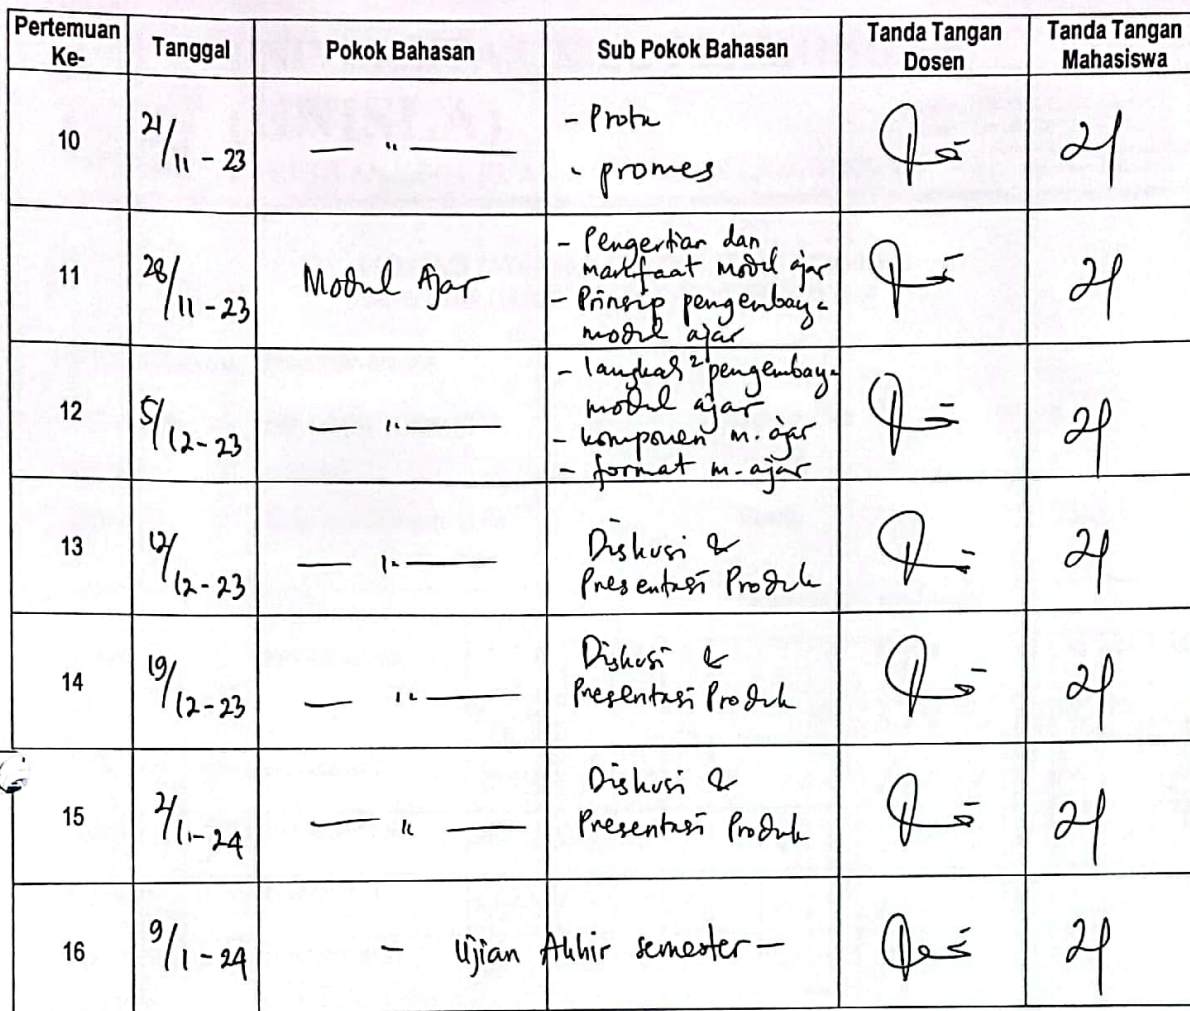 Pertemuan Ke- Tanggal Pokok Bahasan Sub Pokok Bahasan Tanda Tangan Dosen Tanda Tangan Mahasiswa
10 21/11-23 — " — - Prota
- promes
11 28/11-23 Modul Ajar - Pengertian dan
manfaat modul ajar
- Prinsip pengembanga
modul ajar
12 5/12-23 — " — - langkah² pengembanga
modul ajar
- komponen m. ajar
- format m. ajar
13 12/12-23 — " — Diskusi &
Presentasi Produk
14 19/12-23 — " — Diskusi &
Presentasi Produk
15 2/1-24 — " — Diskusi &
Presentasi Produk
16 9/1-24 — Ujian Akhir semester —